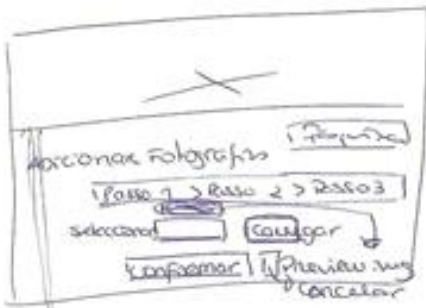 Pesquisa
Adicionar Fotografia
Passo 1 > Passo 2 > Passo 3
seleccionar carregar
Confirmar Preview img
Cancelar